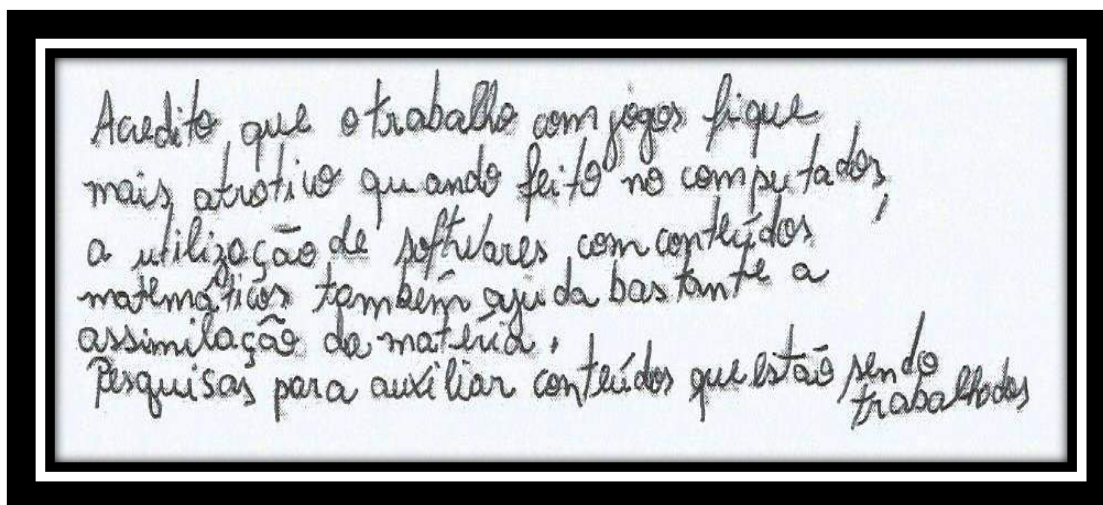 Acredito que o trabalho com jogos fique
mais atrativo quando feito no computador,
a utilização de softwares com conteúdos
matemáticos também ajuda bastante a
assimilação da matéria.
Pesquisas para auxiliar conteúdos que estão sendo
trabalhados